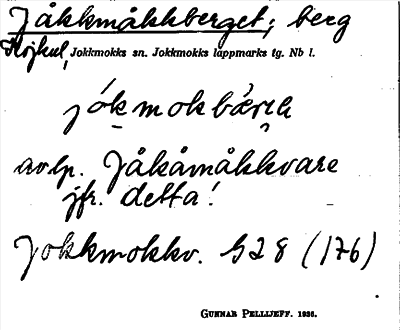 Jåkkmåkkberget; berg
Jokkmokks sn. Jokkmokks lappmarks tg. Nb l.
av lp. Jåkåmåkkvare
jfr. detta!
Jokkmokkv. S28 (176)
GUNNAR PELLIJEFF. 1936.